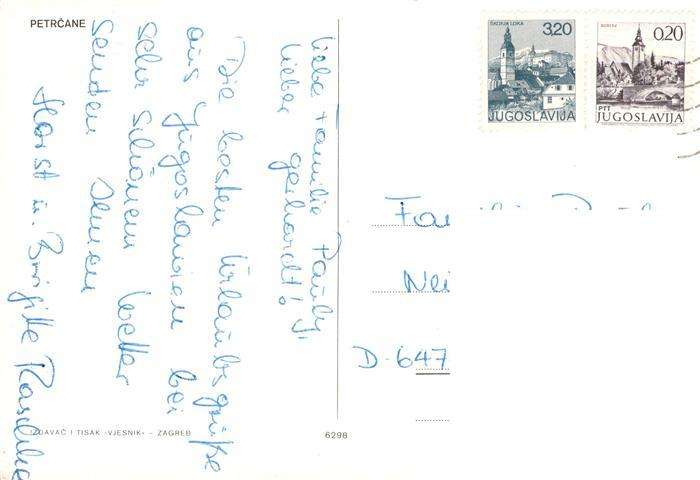 PETRČANE
liebe Familie Pauly,
lieber Gerhardt!
Die besten Urlaubsgrüße
aus Jugoslawien bei
sehr schönem Wetter
senden Ihnen
Horst u. Brigitte
IZDAVAČ I TISAK »VJESNIK« – ZAGREB
6298
ŠKOFJA LOKA
3,20
JUGOSLAVIJA
BOHINJ
0,20
PTT
JUGOSLAVIJA
D-647